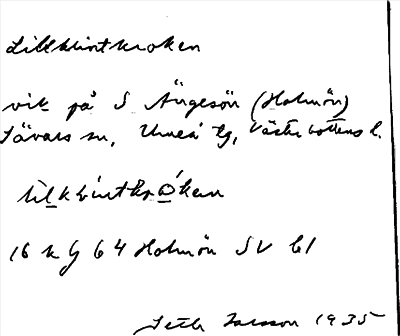 Lillklintkroken
vik på S Ängesön (Holmön)
Sävars sn, Umeå tg, Västerbottens l.
lìlklintkróken
16 k g 64 Holmön SV bl
Seth Larsson 1935